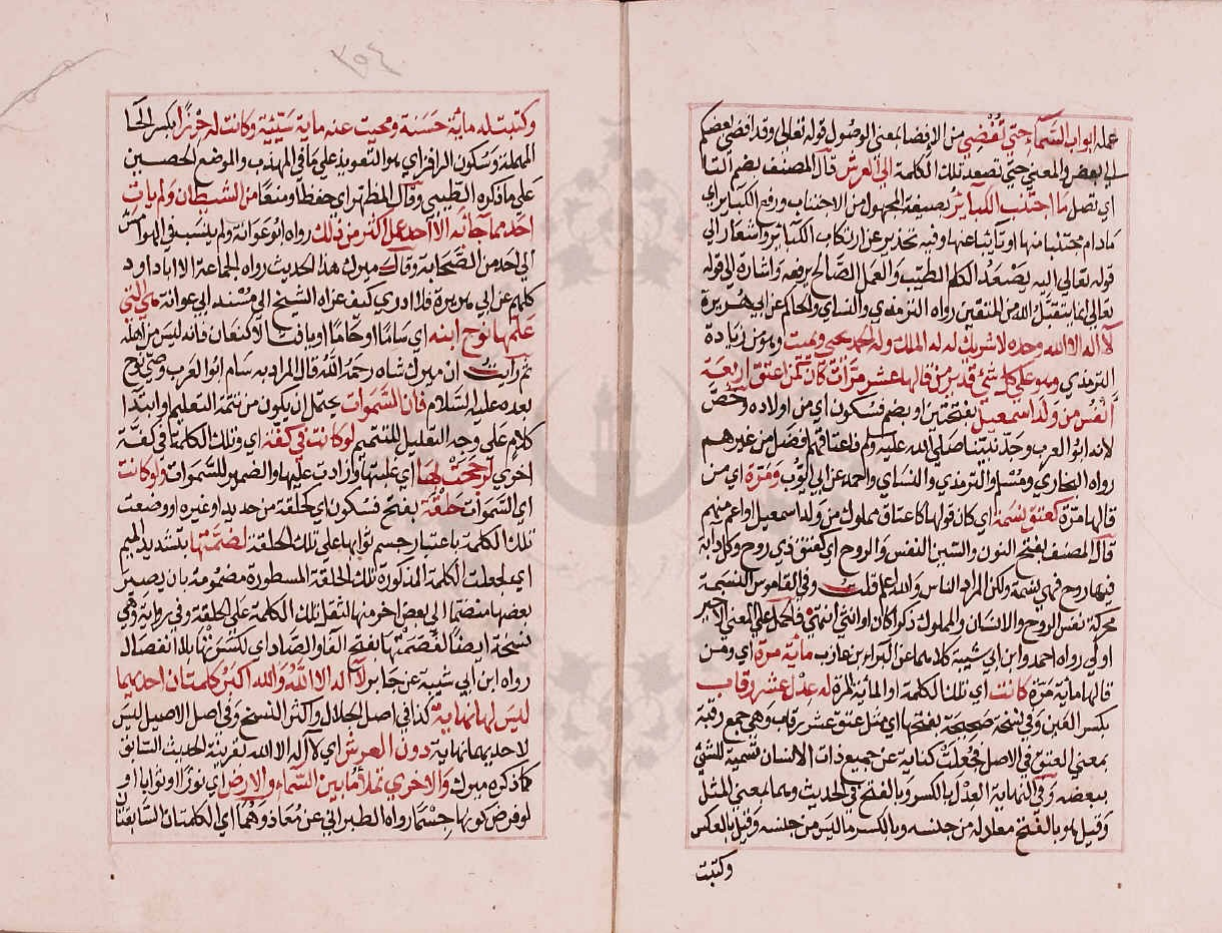 عمله ابواب السماء حتى تفضي من الافضا بمعنى الوصول قوله تعالى وقد افضى بعضكم
الى بعض والمعنى حتى تصعد تلك الكلمة الى العرش قال المصنف بضم التا
اي تصل ما اجتنب الكبائر بصيغة المجهول من الاجتناب ورفع الكبائر اي
مادام مجتنبا منها او تائبا عنها وفيه تحذير عن ارتكاب الكبائر واشعار الى
قوله تعالى اليه يصعد الكلم الطيب والعمل الصالح يرفعه واشارة الى قوله
تعالى انما يتقبل الله من المتقين رواه الترمذي والنساي والحاكم عن ابي هريرة
لا اله الا الله وحده لا شريك له له الملك وله الحمد يحيى ويميت وهو من زيادة
الترمذي وهو على كل شئ قدير من قالها عشر مرات كان كمن اعتق اربعة
انفس من ولد اسمعيل بفتحتين او بضم فسكون اي من اولاده وخص
لانه ابو العرب وجد نبينا صلى الله عليه وسلم فاعتاقهم افضل من غيرهم
رواه البخاري ومسلم والترمذي والنساي واحمد عن ابي ايوب ومرة اي من
قالها مرة كعتق نسمة اي كان قولها كاعتاق مملوك من ولد اسمعيل او اعم منهم
قال المصنف بفتح النون والسين النفس والروح اي كعتق ذي روح وكل دابة
فيها روح فهي نسمة ولكن المراد الناس والله اعلم قلت وفي القاموس النسمة
محركة نفس الروح والانسان والمملوك ذكرا كان او انثى انتهى فالحمل على المعنى الاخير
اولى رواه احمد وابن ابي شيبة كلاهما عن البراء بن عازب مائة مرة اي ومن
قالها مائة مرة كانت اي تلك الكلمة او المائة المرة له عدل عشر رقاب
بكسر العين وفي نسخة صحيحة بفتحها اي مثل عتق عشر رقاب وهي جمع رقبة
بمعنى العنق في الاصل فجعلت كناية عن جميع ذات الانسان تسمية للشئ
ببعضه وفي النهاية العدل بالكسر وبالفتح في الحديث وهما بمعنى المثل
وقيل هو بالفتح معادله من جنسه وبالكسر ما ليس من جنسه وقيل بالعكس
وكتبت
٣٥٤
وكتبت له مائة حسنة ومحيت عنه مائة سيئة وكانت له حرزا بكسر الحا
المهملة وسكون الرا فزاي هو التعويذ على ما في المهذب والموضع الحصين
على ما ذكره الطيبي وقال المظهر اي حفظا ومنعا من الشيطان ولم يات
احد مما جآء به الا احد عمل اكثر من ذلك رواه ابو عوانة ولم ينسب في الهوامش
الى احد من الصحابة وقال ميرك هذا الحديث رواه الجماعة الا ابا داود
كلهم عن ابي هريرة فلا ادري كيف عزاه الشيخ الى مسند ابي عوانة هي التي
علمها نوح ابنه اي ساما او حاما او يافث لا كنعان فانه ليس من اهله
ثم رايت ان ميرك شاه رحمه الله قال المراد به سام ابو العرب وصي نوح
بعده عليه السلام فان السموات يحتمل ان يكون من تتمة التعليم او ابتدا
كلام على وجه التعليل للتتميم لو كانت في كفة اي وتلك الكلمة في كفة
اخرى لرجحت بها اي غلبتها وزادت عليها والضمير للسموات ولو كانت
اي السموات حلقة بفتح فسكون اي كحلقة من حديد او غيره او وضعت
تلك الكلمة باعتبار جسم ثوابها على تلك الحلقة لضمتها بتشديد الميم
اي لجعلت الكلمة المذكورة تلك الحلقة المسطورة مضمومة بان يصير
بعضها منضما الى بعض اخر منها لثقل تلك الكلمة على الحلقة وفي رواية وهي
نسخة ايضا لفصمتها بفتح الفا والصاد اي لكسرتها بلا انفصال
رواه ابن ابي شيبة عن جابر لا اله الا الله والله اكبر كلمتان احديهما
ليس لها نهاية كذا في اصل الجلال واكثر النسخ وفي اصل الاصيل ليس
لاحديهما نهاية دون العرش اي لا اله الا الله بقرينة الحديث السابق
كما ذكره ميرك والاخرى تملأ ما بين السماء والارض اي نورا او ثوابا او
لو فرض كونها جسما رواه الطبراني عن معاذ وهما اي الكلمتان السابقتان